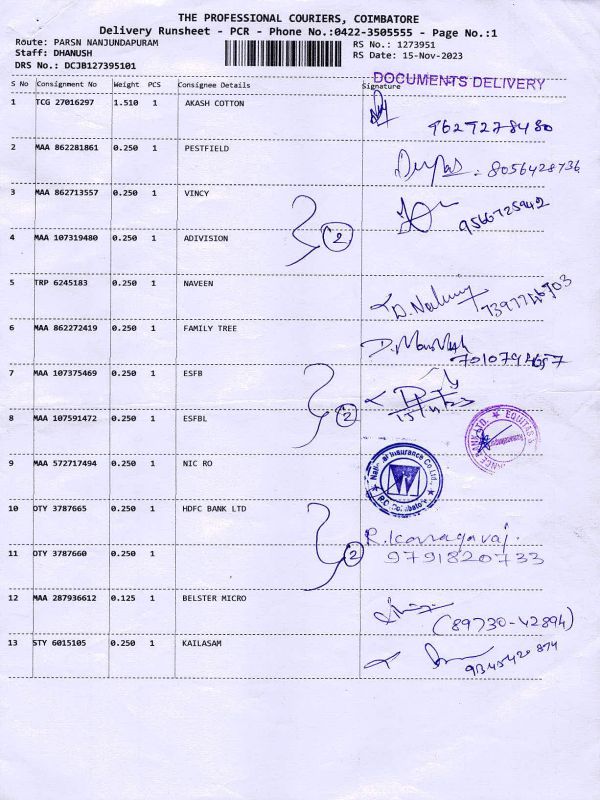 THE PROFESSIONAL COURIERS, COIMBATORE
Delivery Runsheet - PCR - Phone No.:0422-3505555 - Page No.:1
Route: PARSN NANJUNDAPURAM
RS No.: 1273951
Staff: DHANUSH
RS Date: 15-Nov-2023
DRS No.: DCJB127395101
DOCUMENTS DELIVERY
S No Consignment No Weight PCS Consignee Details Signature
1 TCG 27016297 1.510 1 AKASH COTTON
9629278480
2 MAA 862281861 0.250 1 PESTFIELD
8056428736
3 MAA 862713557 0.250 1 VINCY
9566725942
2
4 MAA 107319480 0.250 1 ADIVISION
5 TRP 6245183 0.250 1 NAVEEN
7397746703
6 MAA 862272419 0.250 1 FAMILY TREE
7 MAA 107375469 0.250 1 ESFB
15/11/23
2
8 MAA 107591472 0.250 1 ESFBL
EQUITAS
BANK LTD.
9 MAA 572717494 0.250 1 NIC RO
National Insurance Co.Ltd.,
R.O. Coimbatore
10 OTY 3787665 0.250 1 HDFC BANK LTD
R. Kanagaraj.
9791820733
2
11 OTY 3787660 0.250 1
12 MAA 287936612 0.125 1 BELSTER MICRO
(89730-42894)
13 STY 6015105 0.250 1 KAILASAM